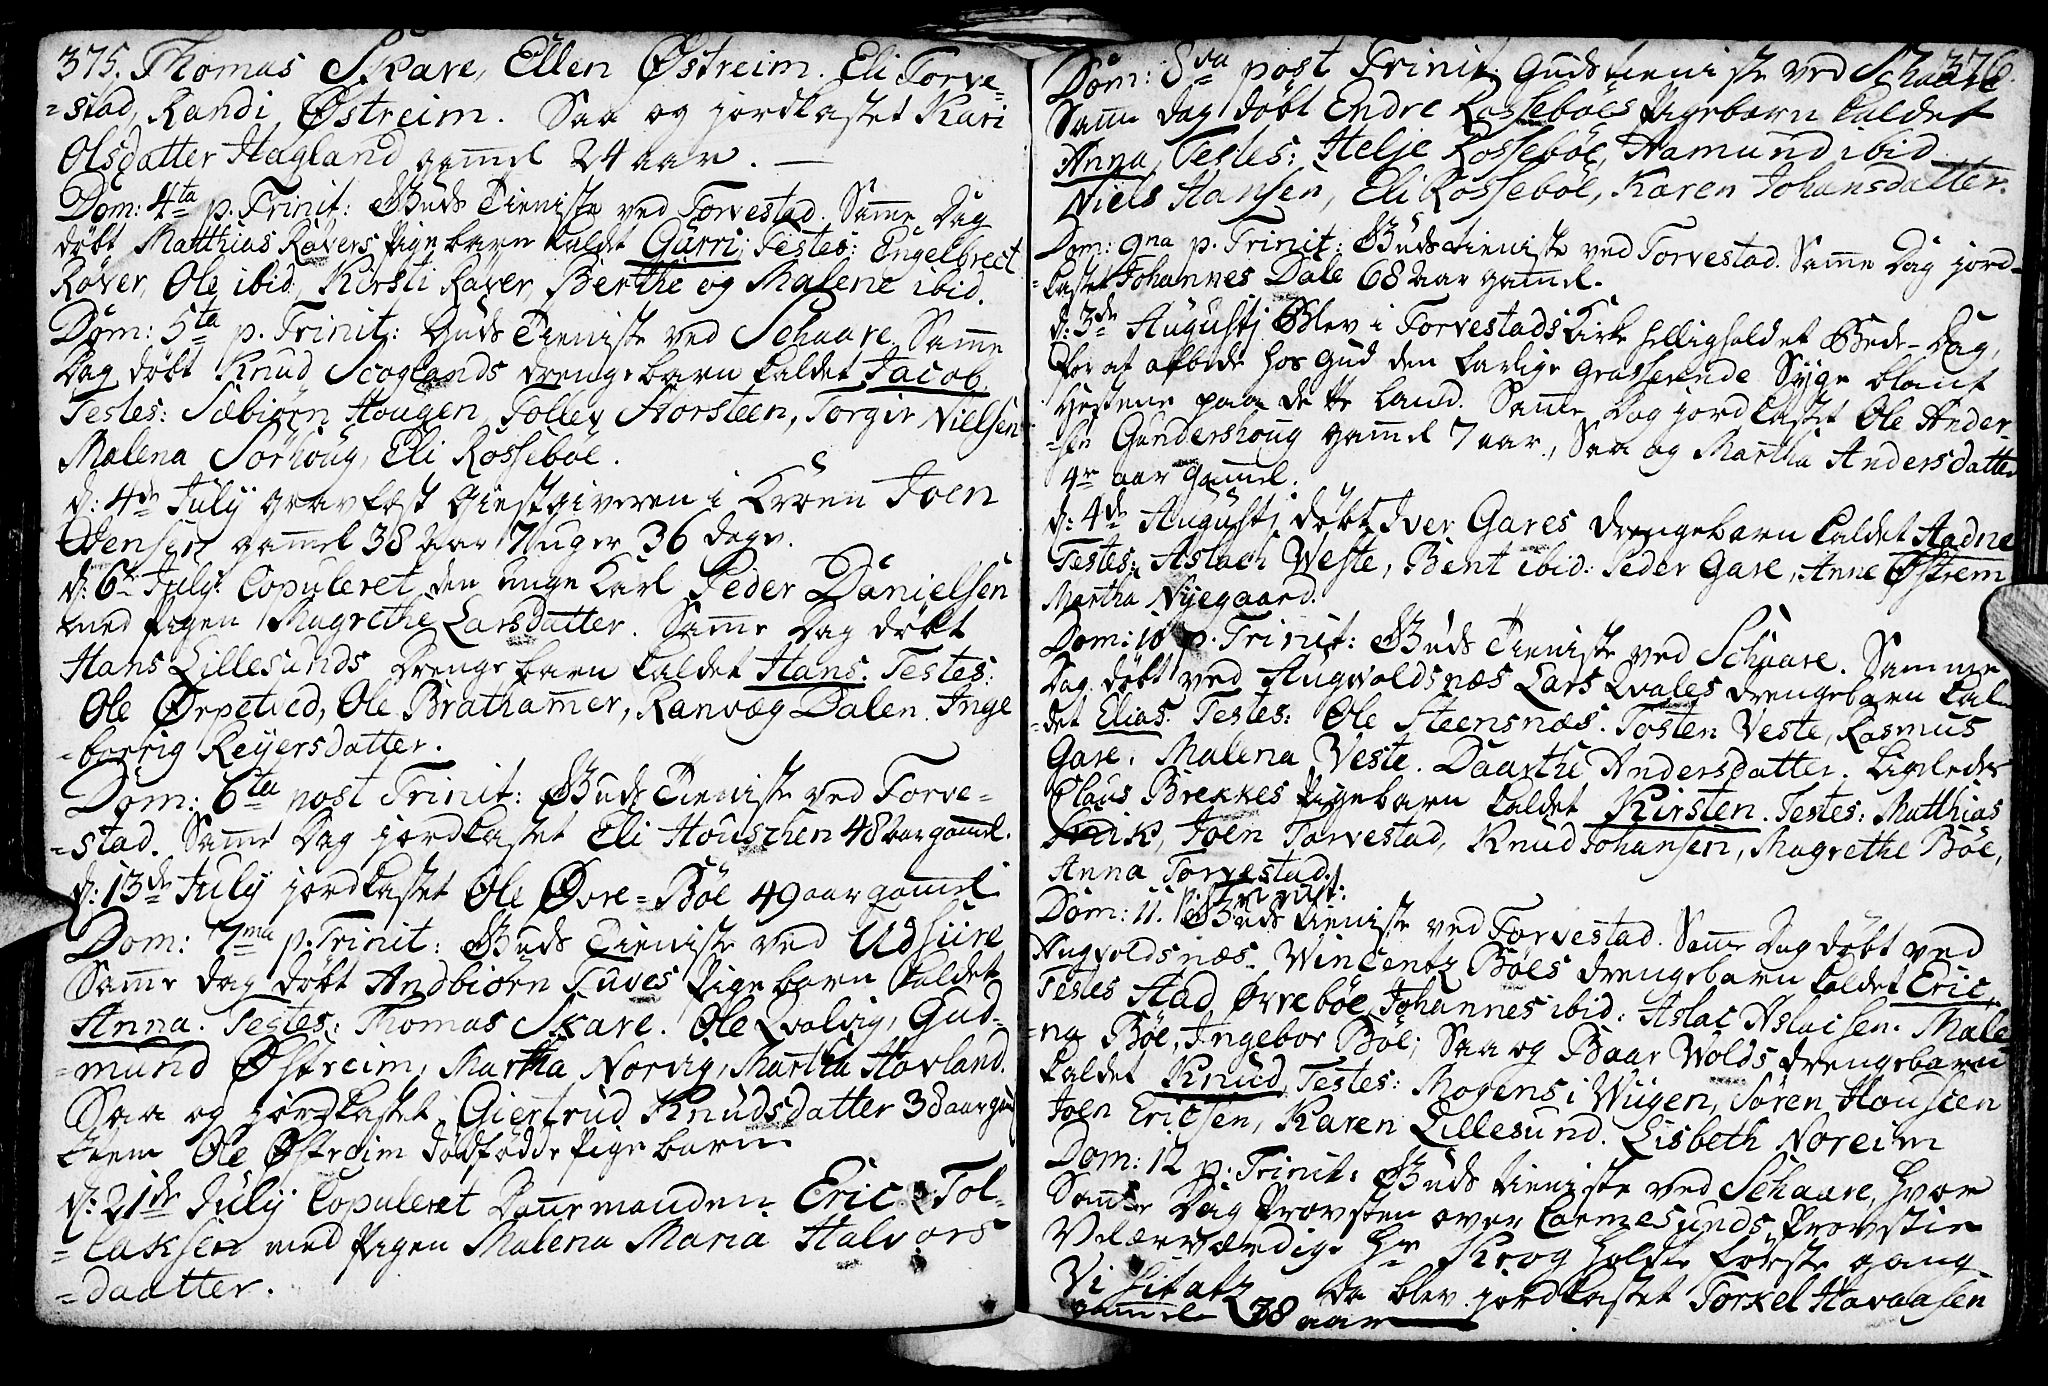 375. Thomas Skare, Ellen Østreim. Eli Torve-
=stad, Randi Østreim. Saa og jordkastet Kari
Olsdatter Hagland gamel 24 aar. —
Dom: 4ta p. Trinit: Guds Tieniste ved Torvestad. Same Dag
døbt Matthias Røvers Pigebarn kaldt Gurri; Testes: Engelbrect
Røver, Ole ibid, Kirsti Røver, Berthe og Malene ibid.
Dom: 5ta p. Trinit: Guds Tieniste ved Schaare. Same
Dag døbt Knud Scoglands drengebarn kaldet Jacob.
Testes: Sæbiørn Hougen, Tollev Storsteen, Torgir Nielsen
Malena Sørhoug, Eli Rossebøe.
d: 4de July gravfæst Giestgiveren i Kroen Joen
Jensen gamel 38 aar 7 uger 36 dage.
d: 6te July: Copuleret den unge Karl Peder Danielsen
med Pigen Magrethe Larsdatter. Same Dag døbt
Hans Lillesunds drengebarn kaldet Hans. Testes:
Ole Ørpetved, Ole Brathamer, Ranvæg Dalen. Inge
=borrig Reyersdatter.
Dom: 6ta post Trinit: Guds Tieniste ved Torve=
=stad. Same Dag jordkastet Eli Houschen 48 aar gamel.
d: 13de July jordkastet Ole Øvre=Bøe 49 aar gamel
Dom: 7ma p. Trinit: Guds Tieniste ved Udsire
Same dag døbt Andbiørn Tuves Pigebarn kaldet
Anna. Testes: Thomas Skare. Ole Qvalvig, Gud-
=mund Østreim, Martha Norvig, Martha Hovland.
Saa og jordkastet Giertrud Knudsdatter 38 aar gl
item Ole Østreim dødfødde Pigebarn
d: 21de July Copuleret Enkemanden Eric Tol-
=laksen med Pigen Malena Maria Halvors
=daatter.
376.
Dom: 8va post Trinit: Guds tieniste ved Schaare
Same Dag døbt Endre Rossebøes Pigebarn kaldet
Anna, Testes: Helje Rossebøe, Hamund ibid
Niels Hansen, Eli Rossebøe, Karen Johansdatter.
Dom: 9na p. Trinit: Guds tieniste ved Torvestad. Same Dag jord-
=kastet Johannes Dale 68 aar gamel.
d: 3de Augustj Blev i Torvestads Kirke helligholdet Bede-Dag,
for at afbede hos Gud den farlige grasserende Syge blant
Hestene paa dette Land. Same Dag jordkastet Ole Ander-
=sen Gundershoug gamel 7 aar, Saa og Martha Andersdatter
4re aar gamel.
d: 4de Augustj døbt Iver Gares drengebarn kaldet Aadne
Testes: Aslach Weste, Bent ibid: Peder Gare, Anne Østrem
Martha Nyegaard.
Dom: 10 p. Trinit: Guds Tieniste ved Schaare. Samme
Dag døbt ved Augvoldsnæs Lars Qvales drengebarn kal-
=det Elias. Testes: Ole Steensnæs. Tosten Veste, Rasmus
Gare, Malena Veste. Daarthe Andersdatter. Ligeledes
Claus Brekkes Pigebarn kaldet Kirsten. Testes: Matthias
Joen Torvestad, Knud Johansen, Magrethe Bøe,
Anna Torvestad.
Dom: 11. post Trinit: Guds tieniste ved Torvestad. Same Dag døbt ved
Augvoldsnæs. Wincentz Bøes drengebarn kaldet Eric,
Testes Aad Øvrebøe, Johannes ibid: Aslac Aslacsen. Male
=na Bøe, Ingebor Bøe; Saa og Baar Wolds drengebarn
kaldet Knud. Testes: Mogens i Wiigen, Søren Housken
Joen Ericsen, Karen Lillesund. Lisbeth Noreim
Dom: 12 p. Trinit: Guds tieniste ved Schaare, hvor
Same Dag Provsten over Carmesunds Provstie
Velærværdige Hr Krog holdte første gang
Visitatz. Da blev jordkastet Torkel Hovaasen
gamel 38 aar